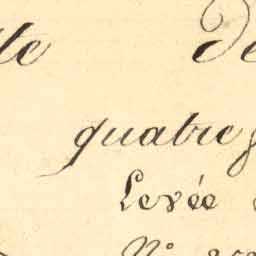 te de
quatre
Levée
N°